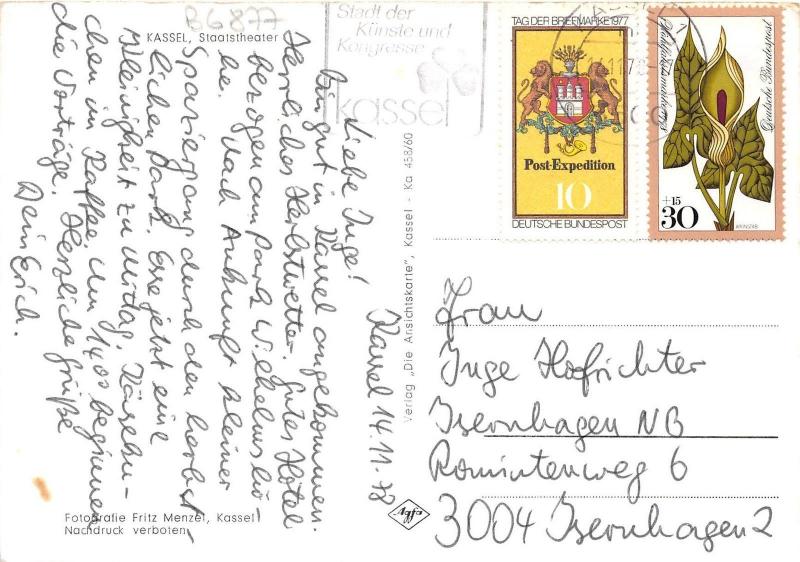 B6877
KASSEL, Staatstheater
Kassel 14.11.78
Liebe Inge!
Bin gut in Kassel angekommen.
Herrliches Herbstwetter, gutes Hotel
bezogen am Park Wilhelmshö-
he. Nach Ankunft kleiner
Spaziergang durch den herbst-
lichen Park. Esse jetzt eine
Kleinigkeit zu Mittag, Käseku-
chen im Kaffee, um 14⁰⁰ beginnen
die Vorträge. Herzliche Grüße
Dein Erich.
Fotografie Fritz Menzel, Kassel
Nachdruck verboten
Verlag „Die Ansichtskarte", Kassel - Ka 458/60
Agfa
Stadt der
Künste und
Kongresse
kassel
TAG DER BRIEFMARKE 1977
Post-Expedition
10
DEUTSCHE BUNDESPOST
Deutsche Bundespost
+15
30
Frau
Inge Hofrichter
Isernhagen NB
Rominterweg 6
3004 Isernhagen 2